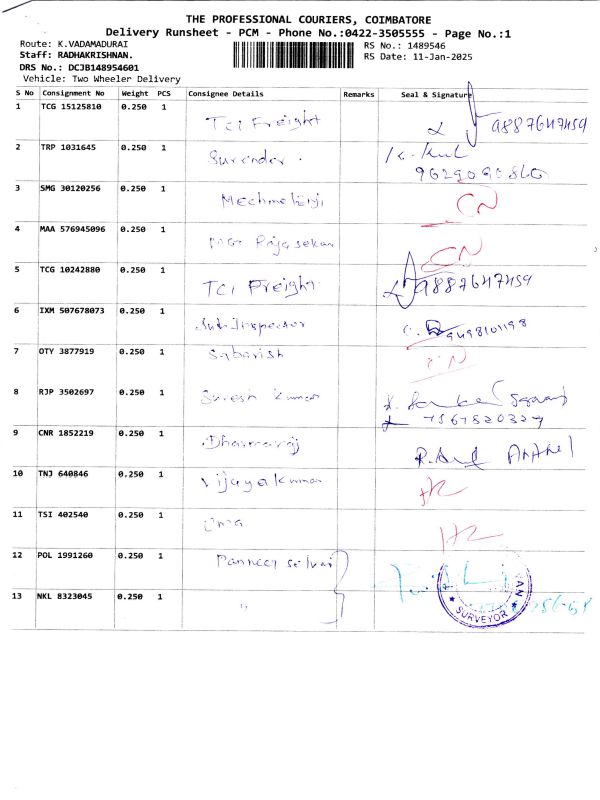 THE PROFESSIONAL COURIERS, COIMBATORE
Delivery Runsheet - PCM - Phone No.:0422-3505555 - Page No.:1
Route: K.VADAMADURAI
RS No.: 1489546
Staff: RADHAKRISHNAN.
RS Date: 11-Jan-2025
DRS No.: DCJB148954601
Vehicle: Two Wheeler Delivery
S No Consignment No Weight PCS Consignee Details Remarks Seal & Signature
1 TCG 15125810 0.250 1 TCI Freight 9887647459
2 TRP 1031645 0.250 1 Surender.
3 SMG 30120256 0.250 1 CN
4 MAA 576945096 0.250 1 Rajasekar CN
5 TCG 10242880 0.250 1 TCI Freight 9887647459
6 IXM 507678073 0.250 1 Sub Inspector 9498101198
7 OTY 3877919 0.250 1 Sabarish CN
8 RJP 3502697 0.250 1 Suresh Kumar
7567520327
9 CNR 1852219 0.250 1 Dharmaraj
10 TNJ 640846 0.250 1 Vijayakumar
11 TSI 402540 0.250 1 Uma
12 POL 1991260 0.250 1 Panneer Selvar
13 NKL 8323045 0.250 1 "
SURVEYOR